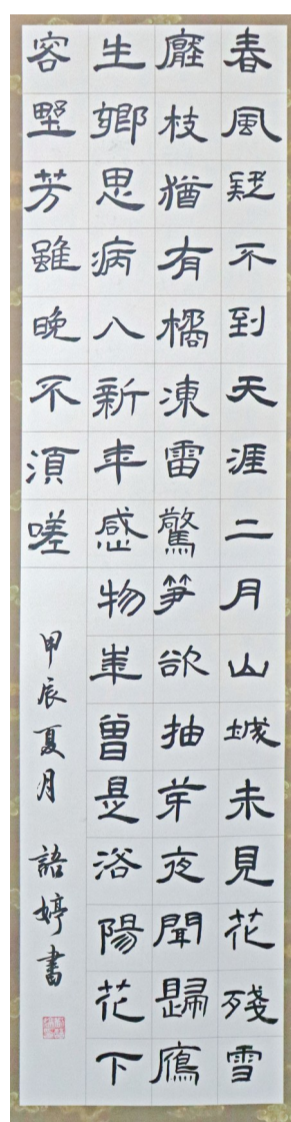 春風疑不到天涯二月山城未見花殘雪
壓枝猶有橘凍雷驚笋欲抽芽夜聞歸鴈
生鄉思病入新年感物華曾是洛陽花下
客墅芳雖晚不須嗟
甲辰夏月 語婷書